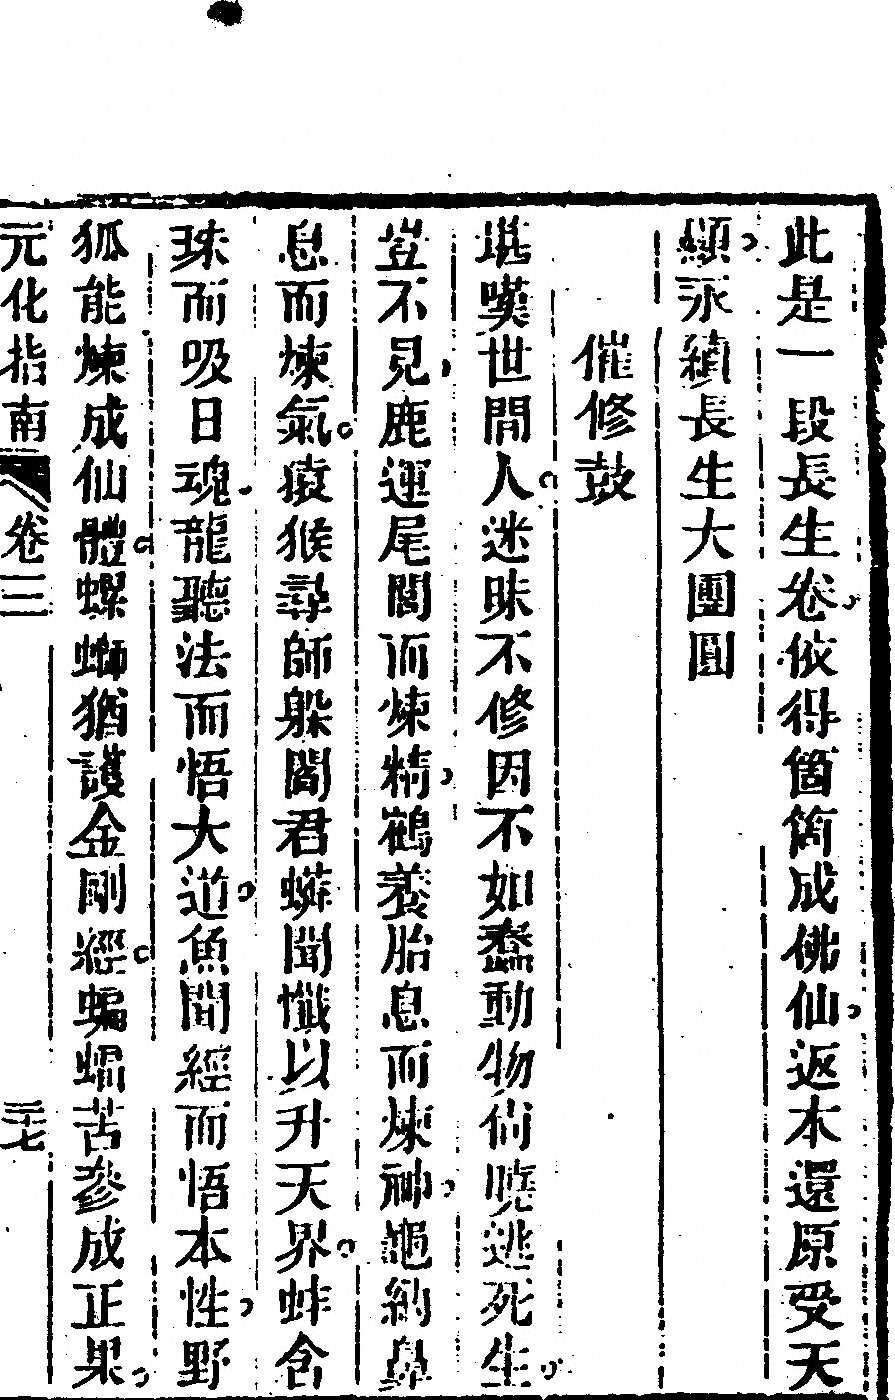 此是一段長生卷依得箇箇成佛仙返本還原受天
顯永鎮長生大團圓
催修鼓
堪嘆世間人迷昧不修因不如蠢動物尚曉逃死生
豈不見鹿運尾閭而煉精鶴養胎息而煉神龜納鼻
息而煉氣猿猴尋師躲閻君蟒聞懺以升天界蚌含
珠而吸日魂龍聽法而悟大道魚聞經而悟本性野
狐能煉成仙體螺螄猶護金剛經蝙蝠苦參成正果
元化指南 卷三 二十七